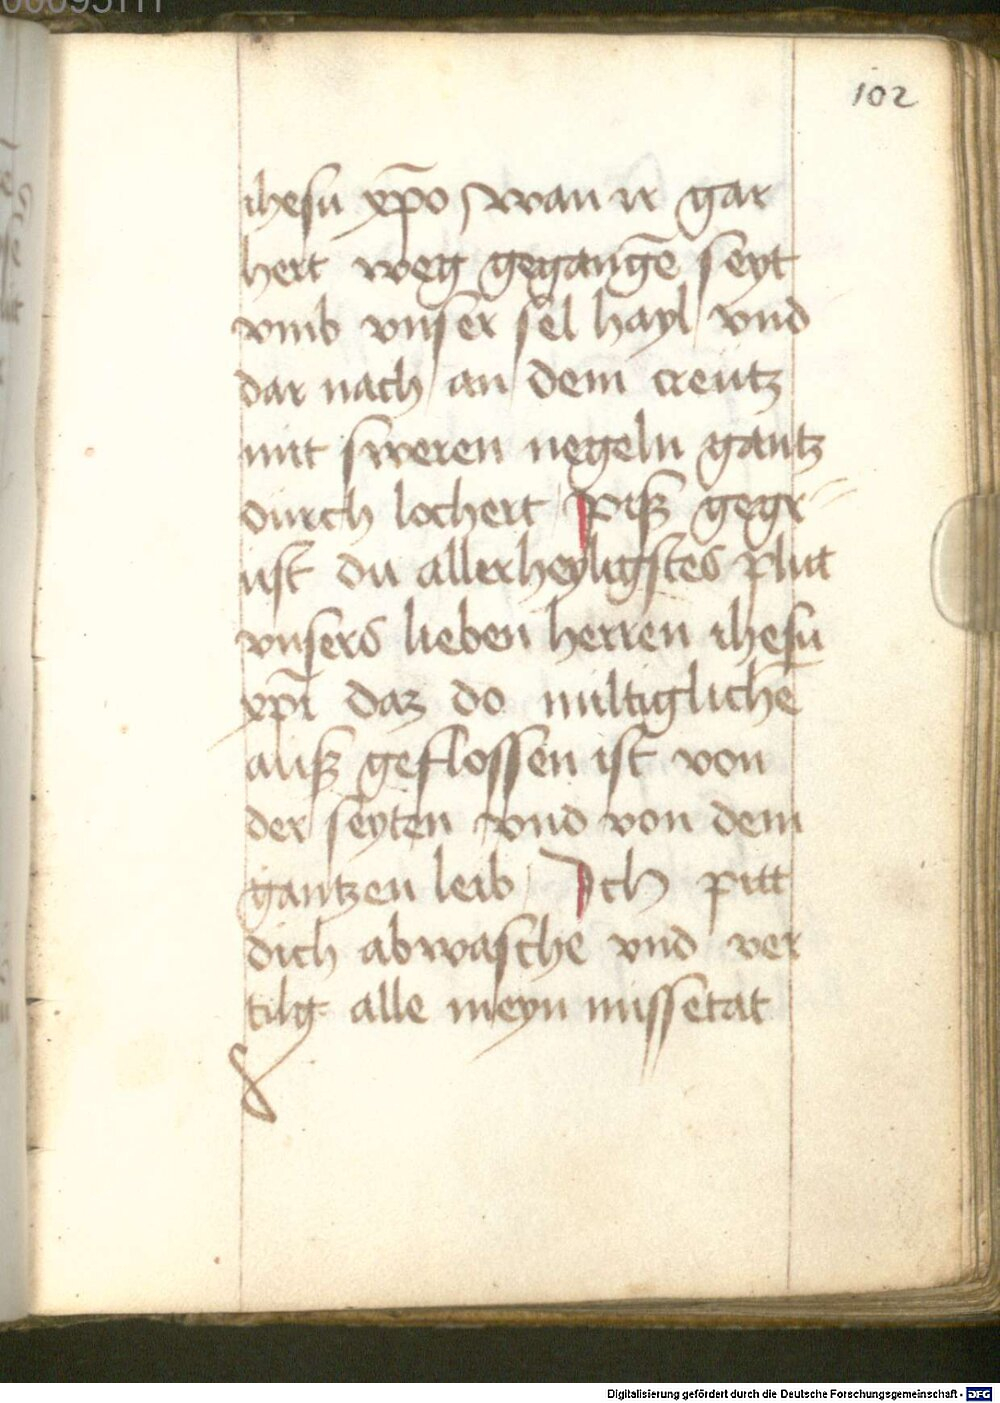 102
ihesu xp̄o / wan ir gar
hert weg gegangē seyt
vmb vnser sel hayl / vnd
dar nach / an dem creutz
mit sweren negeln gantz
durch lochert / Piß gegr
ust du allerheyligstes plut
vnsers lieben herren ihesu
xp̄i daz do miltiglichē
auß geflossen ist von
der seyten vnd von dem
gantzen leib / Ich pitt
dich abwasche vnd ver
tilg alle meyn missetat
Digitalisierung gefördert durch die Deutsche Forschungsgemeinschaft - DFG